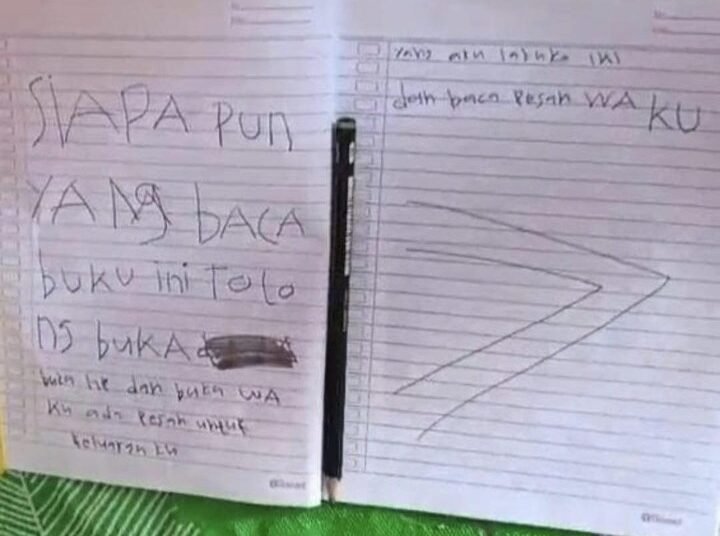 SIAPA PUN
YANG BACA
buku ini Tolo
ng bukA
buka HP dan buka WA
Ku ada Pesan untuk
keluargaku
yang aku lakuka ini
dan baca Pesan WA KU